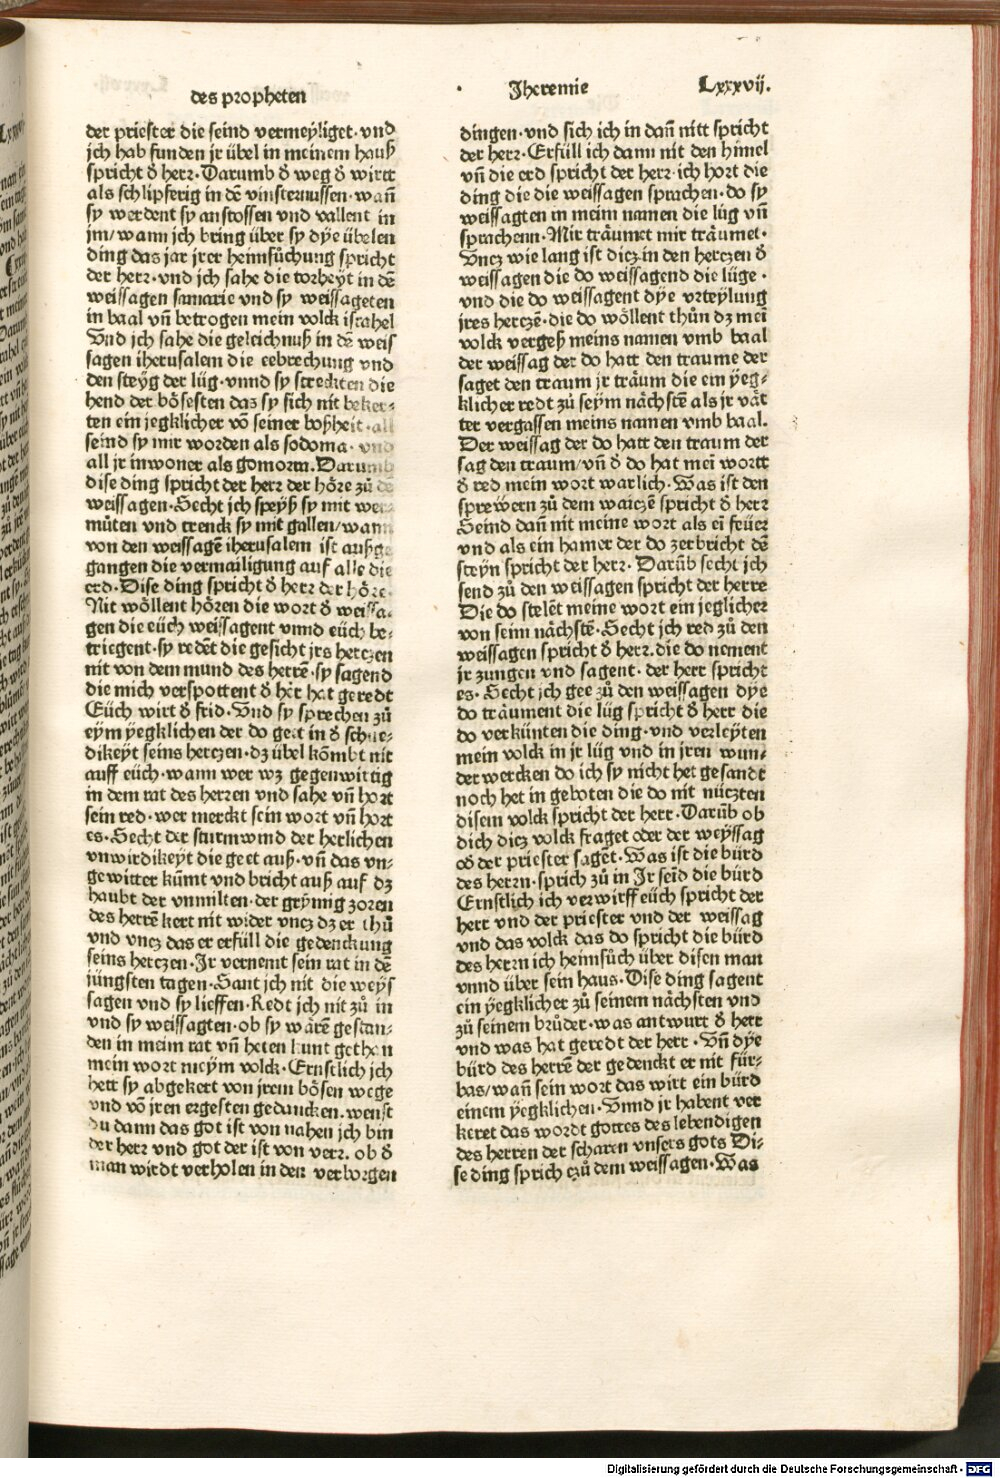 des propheten
Jheremie
Lxxxvij.
der priester die seind vermeyliget·vnd
jch hab funden jr übel in meinem hauß
spricht d̕ herr·Darumb d̕ weg d̕ wirtt
als schlipferig in dē vinsternussen·wañ
sy werdent sy anstossen vnd vallent in
jm/wann jch bring über sy dÿe übelen
ding das jar jrer heimsůchung spricht
der herr·vnd jch sahe die torheyt in dē
weissagen samarie vnd sy weissageten
in baal vñ betrogen mein volck israhel
Vnd jch sahe die geleichnuß in dē weis
sagen iherusalem die eebrechung vnd
den steÿg der lüg·vnnd sy streckten die
hend der bösesten das sy sich nit beker⸗
ten ein jegklicher vō seiner boßheit·all
seind sy mir worden als sodoma·vnd
all jr inwoner als gomorra.Darumb
dise ding spricht der herr der höre zů
weissagen·Secht jch speyß sy mit wer⸗
můten vnd trenck sy mit gallen/wann
von den weissagē iherusalem ist außge
gangen die vermailigung auf alle die
erd·Dise ding spricht d̕ herr der höre·
Nit wöllent hören die wort d̕ weissa⸗
gen die eüch weissagent vnnd eüch be⸗
triegent·sy redēt die gesicht jrs hertzen
nit von dem mund des herrē·sy sagend
die mich verspottent d̕ herr hat geredt
Eüch wirt d̕ frid·Vnd sy sprechen zů
eÿm ÿegklichen der do geet in d̕ schne⸗
dikeyt seins hertzen·dz übel kōmbt nit
auff eüch·wann wer wz gegenwirtig
in dem rat des herren vnd sahe vñ hort
sein red·wer merckt sein wort vñ hort
es·Secht der sturmwind der herlichen
vnwirdikeyt die geet auß·vñ das vn⸗
gewitter kūmt vnd bricht auß auf dz
haubt der vnmilten·der grÿmig zoren
des herrē kert nit wider vncz dz er thů
vnd vncz das er erfüll die gedenckung
seins hertzen·Jr vernemt sein rat in dē
jüngsten tagen·Sant jch nit die weÿs
sagen vnd sy lieffen·Redt jch nit zů in
vnd sy weissagten·ob sy wärē gestan⸗
den in meim rat vñ heten kunt gethan
mein wort meÿm volck·Ernstlich jch
hett sy abgekert von jrem bösen wege
vnd vō jren ergesten gedancken.wenst
du dann das got ist von nahen jch bin
der herr vnd got der ist von verr. ob d̕
man wirdt verholen in den verborgen
dingen·vnd sich ich in dañ nitt spricht
der herr·Erfüll ich dann nit den himel
vñ die erd spricht der herr·ich hort die
ding die die weissagen sprachen·do sy
weissagten in meim namen die lüg vñ
sprachenn·Mir träumet mir träumet·
Vncz wie lang ist dicz in den hertzen d̕
weissagen die do weissagend die lüge·
vnd die do weissagent dÿe vrteylung
jres hertzē·die do wöllent thůn dz mei
volck vergeß meins namen vmb baal
der weissag der do hatt den traume der
saget den traum jr träum die ein ÿeg⸗
klicher redt zů seÿm nächstē als jr vät
ter vergassen meins namen vmb baal.
Der weissag der do hatt den traum der
sag den traum/vñ d̕ do hat mei wortt
d̕ red mein wort warlich·Was ist den
sprewern zů dem waiczē spricht d̕ herr
Seind dañ nit meine wort als ei feüer
vnd als ein hamer der do zerbricht dē
steÿn spricht der herr·Darūb secht jch
send zů den weissagen spricht der herre
Die do stelēt meine wort ein jeglicher
von seim nächstē·Secht jch red zů den
weissagen spricht d̕ herr.die do nement
jr zungen vnd sagent·der herr spricht
es·Secht jch gee zů den weissagen dÿe
do träument die lüg spricht d̕ herr die
do verkünten die ding·vnd verleyten
mein volck in jr lüg vnd in jren wun⸗
derwercken do ich sy nicht het gesandt
noch het in geboten die do nit nüczten
disem volck spricht der herr·Darūb ob
dich dicz volck fraget oder der weÿssag
od̕ der priester sagēt·Was ist die bürd
des herrn·sprich zů in Jr seīd die bürd
Ernstlich ich verwirff eüch spricht der
herr vnd der priester vnd der weissag
vnd das volck das do spricht die bürd
des herrn ich heimsůch über disen man
vnnd über sein haus·Dise ding sagent
ein ÿegklicher zů seinem nächsten vnd
zů seinem brůder·was antwurt d̕ herr
vnd was hat geredt der herr·Vñ dÿe
bürd des herrē der gedenckt er nit für⸗
bas/wañ sein wort das wirt ein bürd
einem ÿegklichen·Vnnd jr habent ver
keret das wordt gottes des lebendigen
des herren der scharen vnsers gots Di⸗
se ding sprich czů dem weissagen·Was
Digitalisierung gefördert durch die Deutsche Forschungsgemeinschaft - DFG